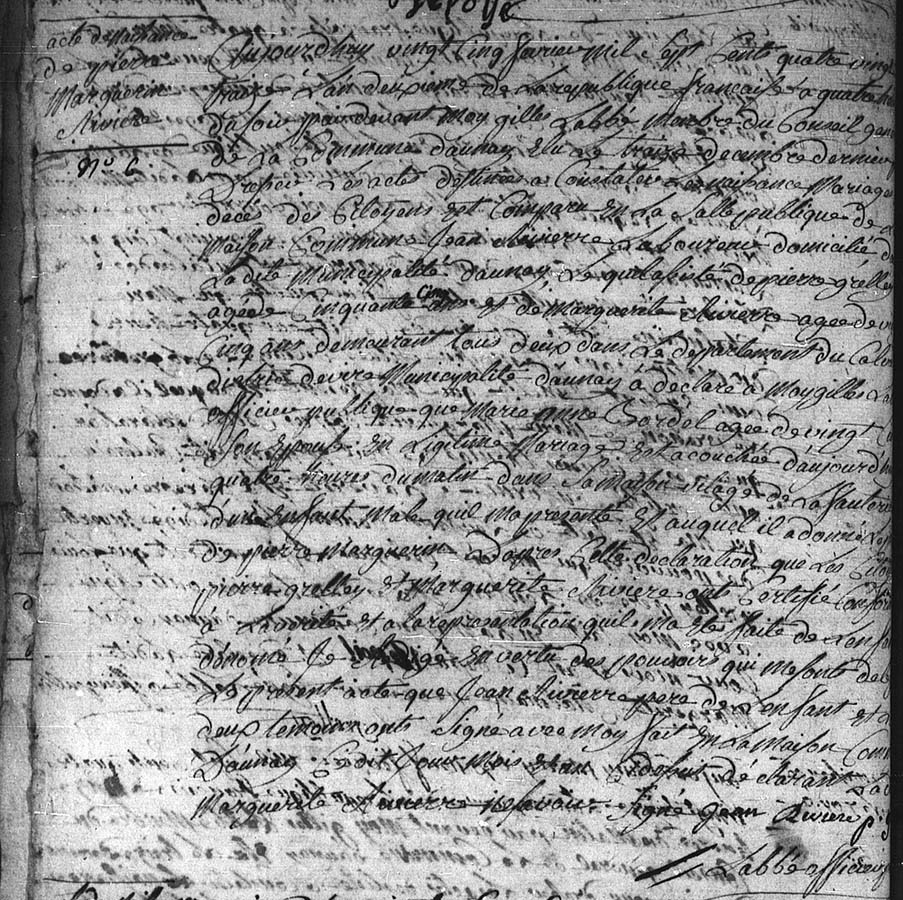 Lépouse
acte de Naissance
de pierre
Marguerin
Riviere
N° 6
Aujourdhuy vingt Cinq fevrier mil Sept Cents quatre vingt
traize Lan deuxieme de La republique francaise a quatre
du soir par devant Moy gilles Labbé Membre du Conseil gen
de La Commune daunay Elu Le traize decembre dernier
Dresser Les actes destinées a Constater Les naissance Mariages
décès des Citoyens Est Comparu En La Salle publique de
Maison Commune Jean Rivierre Laboureur domicilié d
La dite Municipalité daunay Le quel assisté de pierre grelley
agée de Cinquante Cinq ans et de Marguerite Rivierre agée de
Cinq ans demeurant tous deux dans Le departement du Calv
district de vire Municipalité daunay à declaré a Moy gilles La
officier publique que Marie anne Bordel agée de vingt
Son Epouse En Legitime Mariage Est acouchée daujourdh
quatre heures du matin dans Sa maison vilage de La fauter
dun Enfant male quil ma presenté Et auquel il a donné Le
de pierre Marguerin Dapres Cette declaration que Les Cito
pierre grelley Et Marguerite Riviere ont Certifié Confor
à La verité et a la representation quil ma Ete faite de Lenfa
dénomé Je En vertu des pouvoirs qui me sont de
Le present acte que Jean Rivierre pere de Lenfant et
deux temoins onts Signé avec Moy fait En La maison Com
Daunay Ledit Jour Mois et an Cidessus Le déclarant
Marguerite Rivierre Signé Jean Riviere
Labbé officier